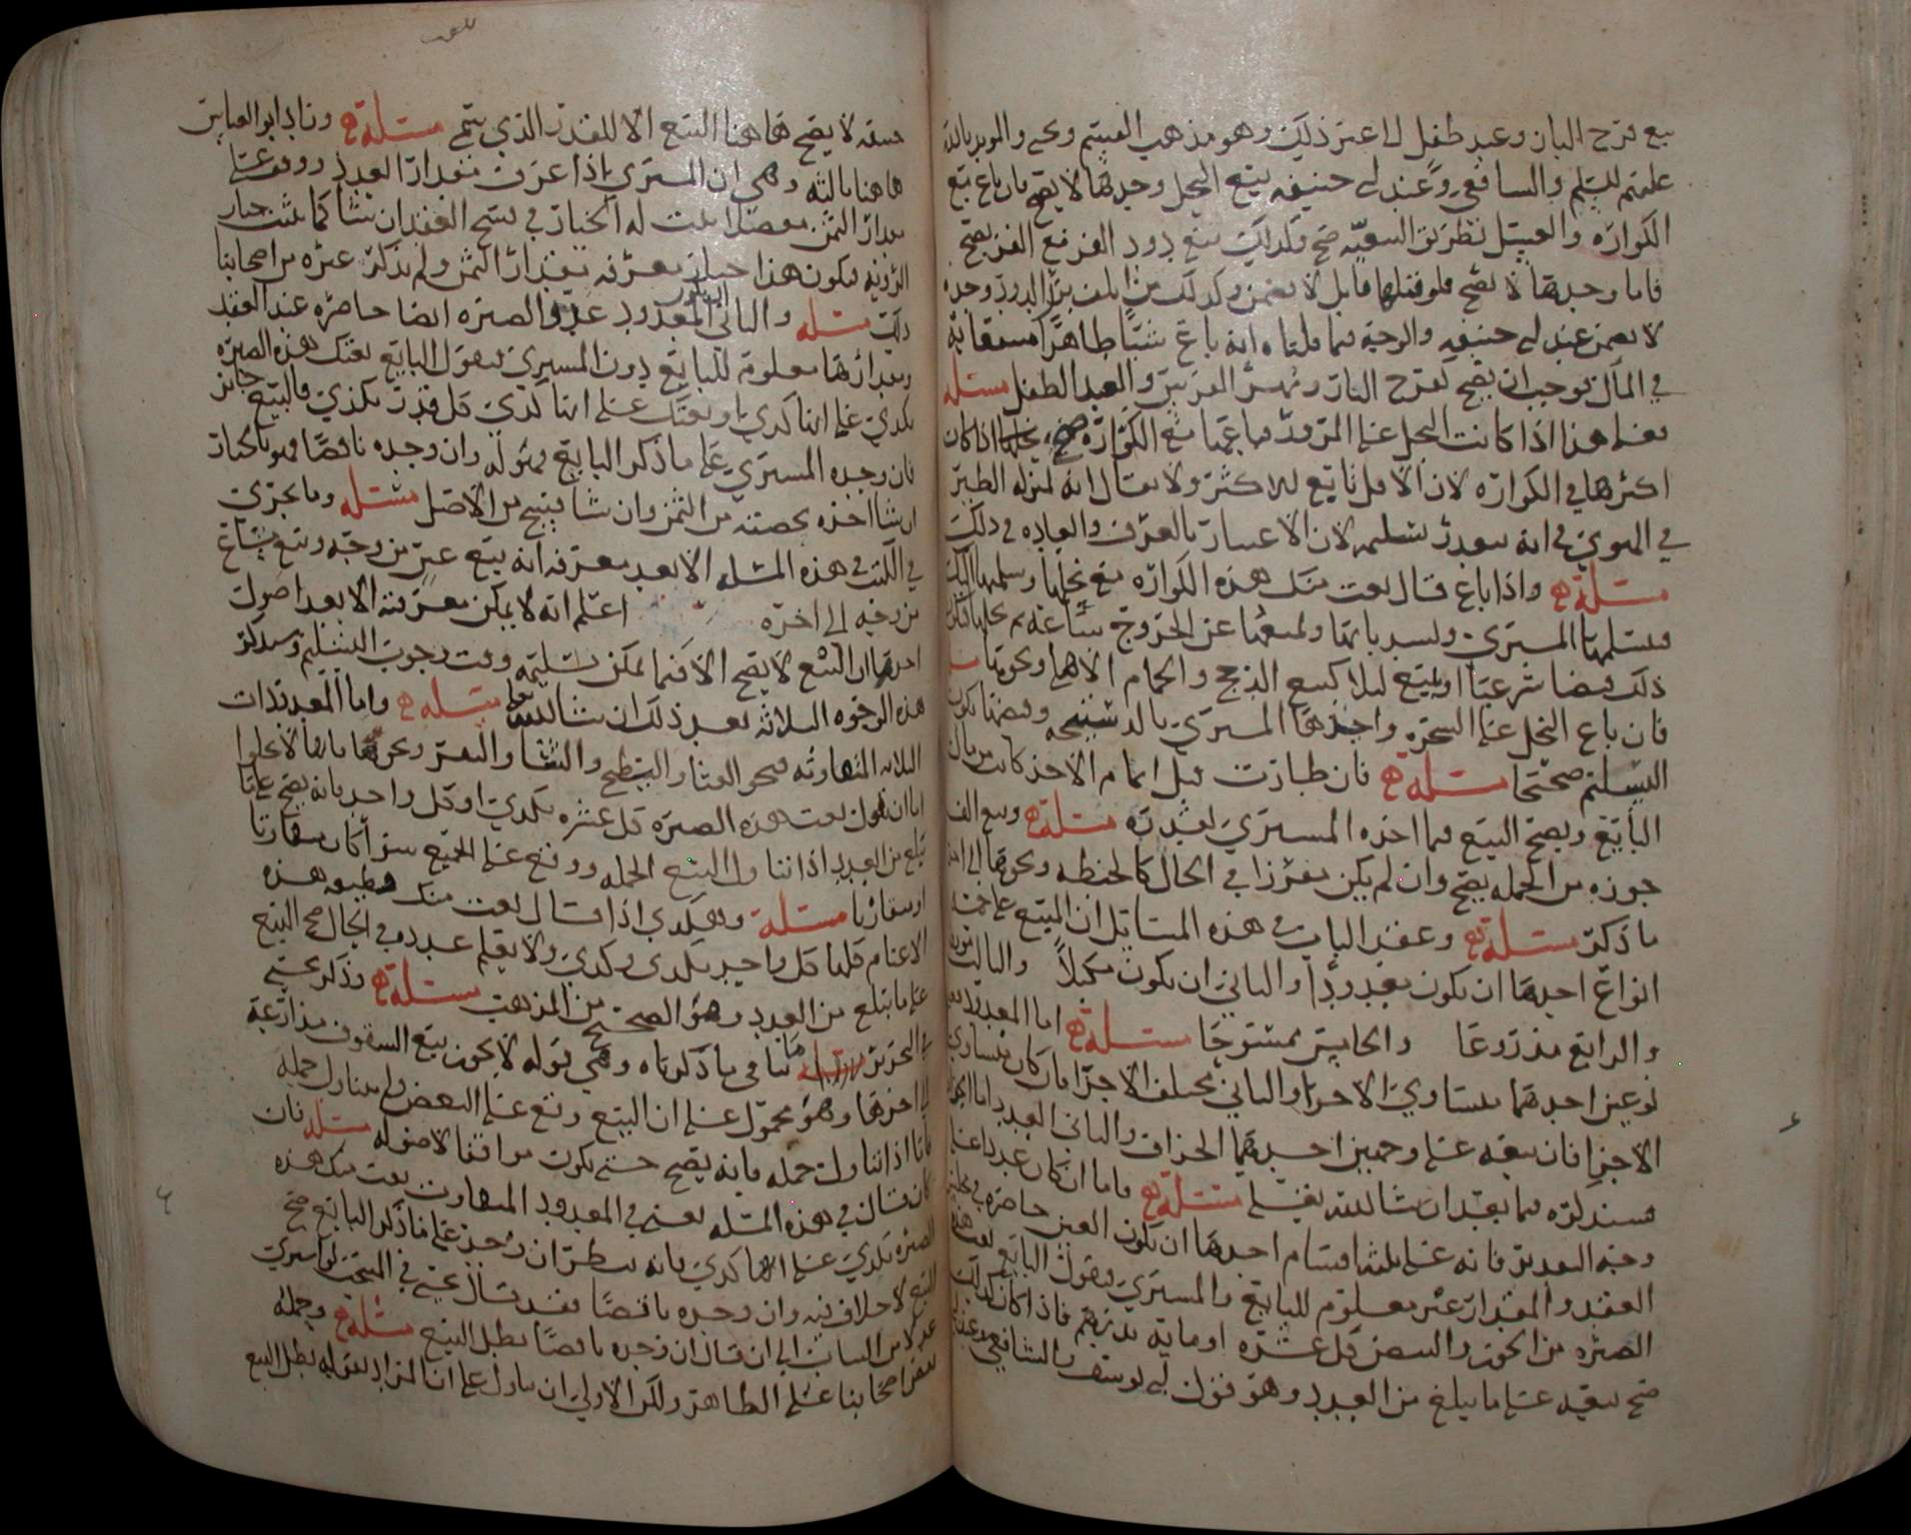 بيع فرخ البازي وعبد طفل لا عند ذلك وهو مذهب القسم ويحيى والمويد بالله
عليهم السلم والشافعي وعند أبي حنيفه بيع النحل وحدها لا يصح فان باع مع
الكواره والعسل بطريق التبعيه صح وكذلك بيع دود القز مع القز يصح
فاما وحدها لا يصح فلو قتلها قاتل لا يضمن وكذلك من اتلف بزر الدود وحده
لا يضمن عند أبي حنيفه والوجه فيما قلناه انه باع شيئا طاهرا منتفعا به
في المآل فوجب ان يصح كفرخ الباز ومهر الفرس والعبد الطفل مسئله
فعلى هذا اذا كانت النحل على المرود فباعها مع الكواره صح اذا كان
اكثرها في الكواره لان الاقل تابع للاكثر ولا يقال انه بمنزله الطير
في الهوى في انه يتعذر تسليمه لان الاعتبار بالعرف والعاده في ذلك
مسئله واذا باع فقال بعت منك هذه الكواره مع نحلها وسلمها اليك
فتسلمها المشتري وليسد بابها ولمنعها عن الخروج ساعه ثم يخليها فان
ذلك قبضا شرعيا او بيع ليلا كبيع الدجج والحمام الاهلي ونحوها
فان باع النحل على الشجره واخذها المشتري بالد وقبضها يكون
التسليم صحيحا مسئله فان طارت قبل اتمام الاخذ كانت من مال
البايع ويصح البيع فيما اخذه المشتري بقدره مسئله وبيع
جوزه من الجمله يصح وان لم يكن مفرزا في الحال كالحنطه ونحوها
ما ذكر مسئله وعقد الباب في هذه المسايل ان المبيع على خمسه
انواع احدها ان يكون معدودا والثاني ان يكون مكيلا والثالث موزونا
والرابع مذروعا والخامس ممسوحا مسئله اما المعدود
نوعين احدهما متساوي الاجزا والثاني مختلف الاجزا فان كان متساوي
الاجزا فان بيعه على وجهين احدهما الجزاف والثاني العدد اما
فسنذكره فيما بعد ان شا الله تعلى مسئله واما ان كان عددا
وجه التعدد فانه على ثلثه اقسام احدها ان يكون العين حاضره في
العقد والمقدار غير معلوم للبايع والمشتري فيقول البايع بعت هذه
الصبره من الجوز والبيض كل عشره او مايه بدرهم فاذا كان كذلك
صح بيعه على ما يبلغ من العدد وهو قول أبي يوسف والشافعي وعند
حنيفه لا يصح هاهنا البيع الا للقدر الذي يسمى مسئله وزاد ابو العباس
هاهنا ثالثه وهي ان المشتري اذا عرف مقدار العدد ووقف على
مقدار الثمن مفصلا يثبت له الخيار في فسخ العقد ان شا كما يثبت خيار
الرويه فيكون هذا خيار معرفه مقدار الثمن ولم يذكره غيره من اصحابنا
ذلك مسئله والثاني المعدود عدد والصبره ايضا حاضره عند العقد
ومقدارها معلومه للبايع دون المشتري فيقول البايع بعتك هذه الصبره
بكذى على انها كذى او بعتك على انها كذى كل قدر بكذى فالبيع جائز
فان وجده المشتري على ما ذكر البايع فهو له وان وجده ناقصا فهو بالخيار
ان شا اخذه بحصته من الثمن وان شا فسخ من الاصل مسئله وما يجزي
في الكتب في هذه المسئله الا بعد معرفه انه بيع عين من وجه وبيع مشاع
من وجه الى اخره اعلم انه لا يمكن معرفته الا بعد اصول
احدها ان البيع لا يصح الا فيما يمكن تسليمه وقت وجوب التسليم وسنذكر
هذه الوجوه الثلاثه بعد ذلك ان شا الله مسئله واما المعدودات
الثلاثه المتفاوته فنحو القثا والبطيخ والشا والبقر ونحوها فانها لا يخلوا
اما ان يقول بعت هذه الصبره كل عشره بكذى او كل واحد فانه يصح على ما
يبلغ من العدد اذا تناول البيع الجمله ووقع على الجميع سوا كان متقاربا
او متفاوتا مسئله وهكذى اذا قال بعت منك قطيعه هذه
الاغنام كلها كل واحد بكذى وكذى ولا يعلم عدده في الحال صح البيع
على ما يبلغ من العدد وهو الصحيح من المذهب مسئله وذكر يحيى
في التحرير ما ينافي ما ذكرناه وهي قوله لا يجوز بيع السقوف مذارعه
الى اخرها وهو محمول على ان البيع وقع على البعض ولم يتناول جمله
فاما اذا تناول جمله فانه يصح حتى يكون موافقا لاصوله مسئله فان
كان قال في هذه المسئله يعني في المعدود المتفاوت بعت منك هذه
الصبره بكذى على انها كذى فانه ينظر ان وجد على ما ذكر البايع صح
البيع لا خلاف فيه وان وجده ناقصا فقد قال يحيى في المنتخب لو اشترى
عدلا من الثياب الى ان قال ان وجده ناقصا بطل البيع مسئله وحمله
بعض اصحابنا على الظاهر ولكن الاولى ان يتاول على ان المراد بقوله بطل البيع